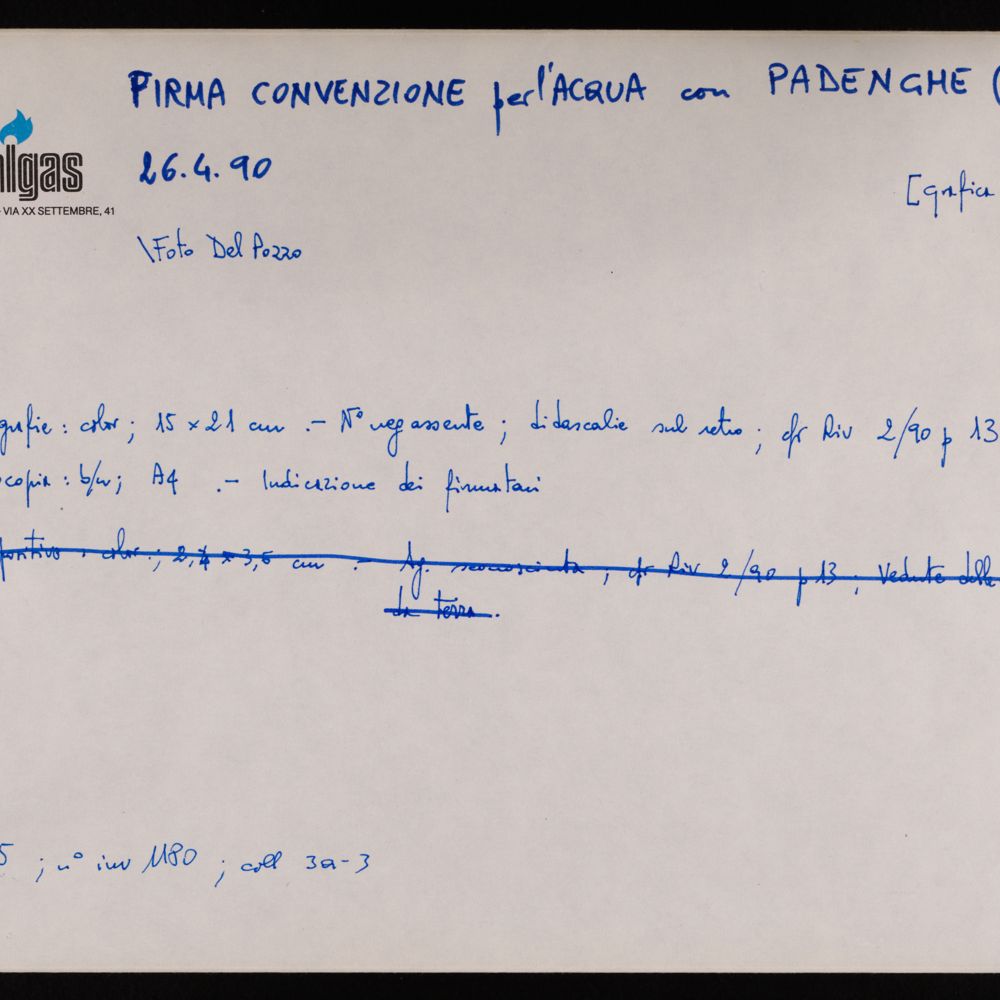 FIRMA CONVENZIONE per l'ACQUA con PADENGHE (
lgas
26.4.90
- VIA XX SETTEMBRE, 41
[grafica
\Foto Del Pozzo
grafie: color; 15 x 21 cm .- N° neg assente; didascalie sul retro; cfr Riv 2/90 p 13
copia: b/w; A4 .- Indicazione dei firmatari
color; 2,4 x 3,6 cm .- Ag. sconosciuta; cfr Riv 2/90 p 13; Vedute della
da terra.
5; n° inv 1180; coll 3a-3